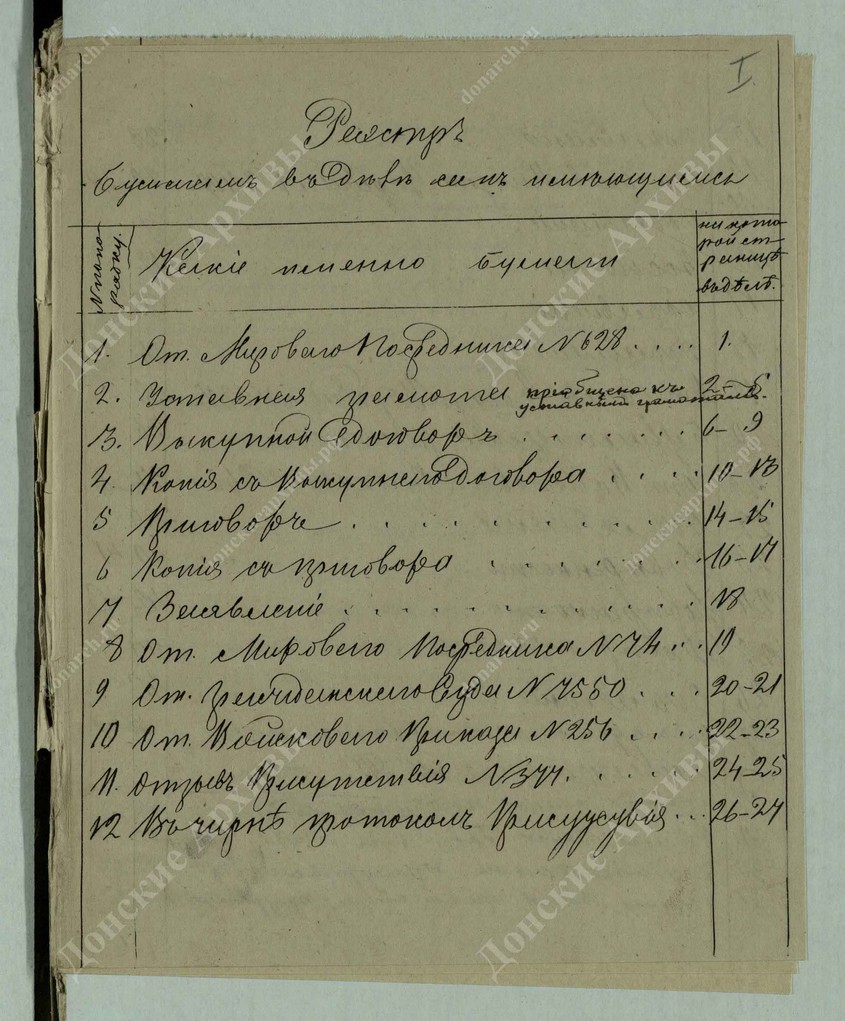 I.
Реэстръ
бумагамъ въ дѣлѣ семъ имѣющимися
№ по по-
рядку.
Какіе именно бумаги
на кото
рой ст-
раницѣ
въ дѣлѣ.
1. От. Мироваго Посредника № 628 . . . . 1.
2. Уставная грамота пріобщена къ 2-5
уставнымъ грамотамъ.
3. Выкупной договоръ . . . . . . . 6-9
4. Копія съ Выкупнаго договора . . . . 10-13
5 Приговоръ . . . . . . . . . . . 14-15
6 Копія съ приговора . . . . . . 16-17
7 Заявленіе . . . . . . . . . . . 18
8 От. Мироваго Посредника № 74 . . . 19
9 От. Гражданскаго Суда № 7550 . . . 20-21
10 От. Войсковаго Приказа № 256 . . . . 22-23
11. Отзывъ Присутствія № 377. . . . . . 24-25
12 протоколъ . . . 26-27
Донские Архивы
donarch.ru